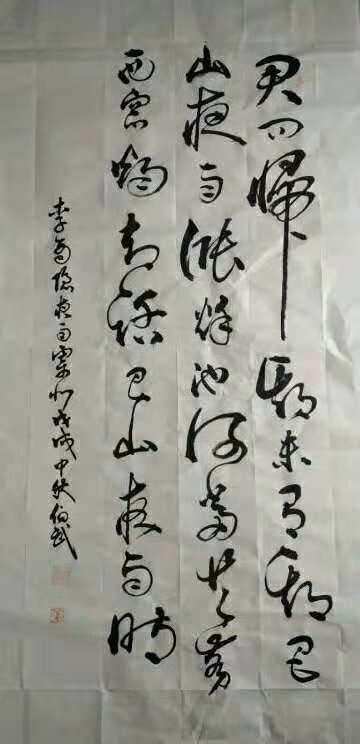 君问歸期未有期巴
山夜雨漲秋池何當共剪
西窗燭却話巴山夜雨時
李商隐夜雨寄北戊戌中秋伯武